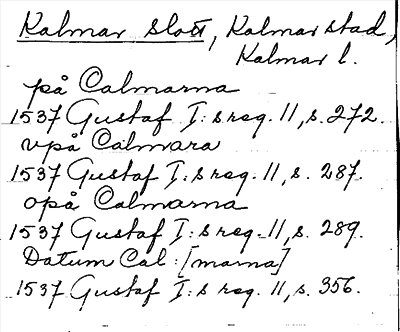 Kalmar slott, Kalmar stad,
Kalmar l.
på Calmarna
1537 Gustaf I:s reg. 11, s. 272.
vpå Calmara
1537 Gustaf I:s reg. 11, s. 287.
opå Calmarna
1537 Gustaf I:s reg. 11, s. 289.
Datum Cal:[marna]
1537 Gustaf I:s reg. 11, s. 356.